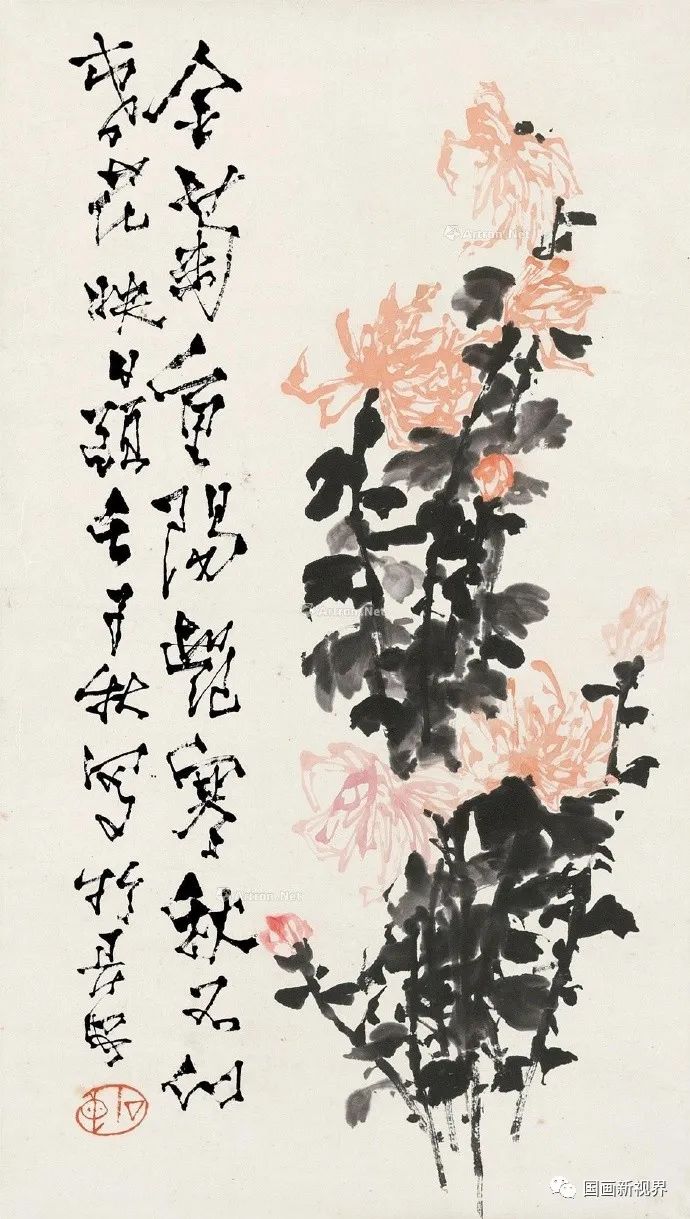 金菊重陽艷寒秋不似
春花映日壬子秋写於長安
Artron.Net
Artron.Net
Artron.Net
国画新视界